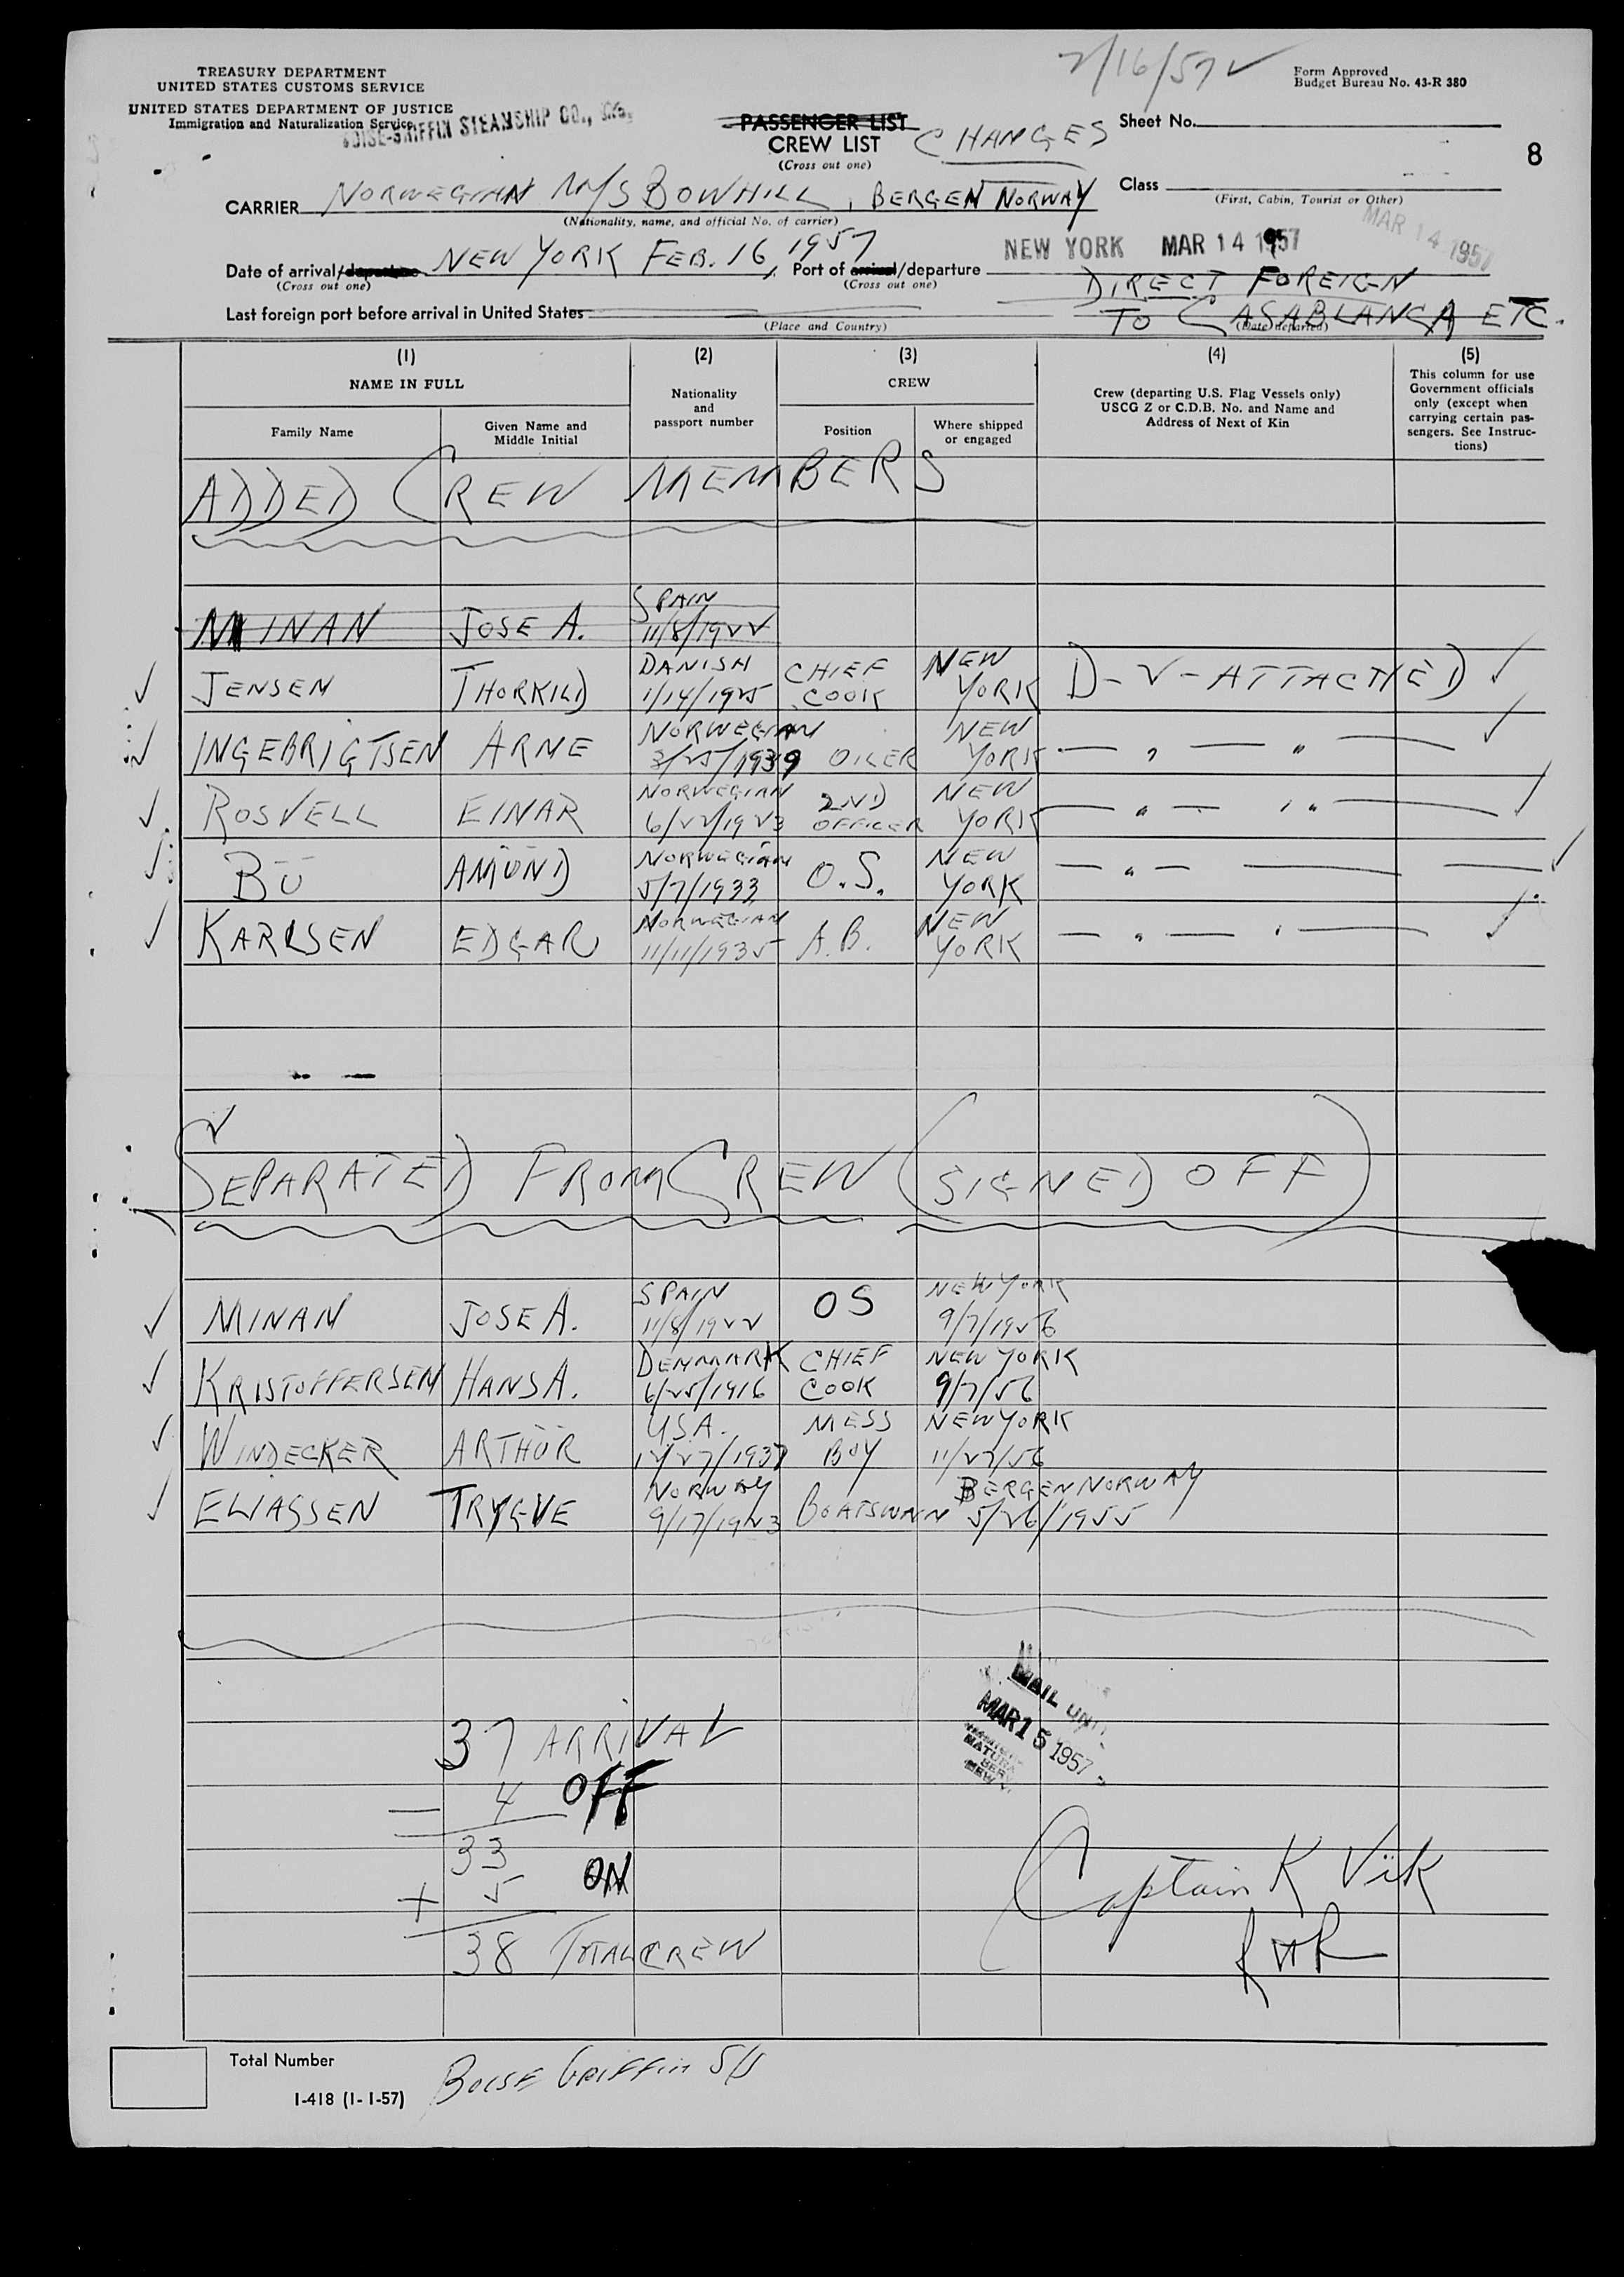 2/16/57 ✓
TREASURY DEPARTMENT
UNITED STATES CUSTOMS SERVICE
UNITED STATES DEPARTMENT OF JUSTICE
Immigration and Naturalization Service
BOISE-GRIFFIN STEAMSHIP CO., INC.
Form Approved
Budget Bureau No. 43-R 380
PASSENGER LIST
CREW LIST CHANGES
(Cross out one)
Sheet No.
8
CARRIER NORWEGIAN M/S BOWHILL, BERGEN NORWAY
(Nationality, name, and official No. of carrier)
Class
(First, Cabin, Tourist or Other)
MAR 14 1957
Date of arrival/departure NEW YORK FEB. 16, 1957, Port of arrival/departure NEW YORK MAR 14 1957
(Cross out one) (Cross out one)
DIRECT FOREIGN
Last foreign port before arrival in United States
TO CASABLANCA ETC.
(Place and Country) (Date departed)
(1) (2) (3) (4) (5)
NAME IN FULL
Family Name
Given Name and Middle Initial
Nationality and passport number
CREW
Position
Where shipped or engaged
Crew (departing U.S. Flag Vessels only) USCG Z or C.D.B. No. and Name and Address of Next of Kin
This column for use Government officials only (except when carrying certain passengers. See Instructions)
ADDED CREW MEMBERS
MINAN JOSE A. SPAIN 11/8/1922
✓ JENSEN THORKILD DANISH 1/14/1925 CHIEF COOK NEW YORK D-V-ATTACHED ✓
✓ INGEBRIGTSEN ARNE NORWEGIAN 3/25/1939 OILER NEW YORK — " — " — ✓
✓ ROSVELL EINAR NORWEGIAN 6/22/1923 2ND OFFICER NEW YORK — " — " — ✓
✓ BU AMUND NORWEGIAN 5/7/1933 O.S. NEW YORK — " — — — ✓
✓ KARLSEN EDGAR NORWEGIAN 11/11/1935 A.B. NEW YORK — " — " — ✓
✓
SEPARATED FROM CREW (SIGNED OFF)
✓ MINAN JOSE A. SPAIN 11/8/1922 OS NEW YORK 9/7/1956
✓ KRISTOFFERSEN HANS A. DENMARK 6/25/1916 CHIEF COOK NEW YORK 9/7/56
✓ WINDECKER ARTHUR U.S.A. 12/27/1937 MESS BOY NEW YORK 11/27/56
✓ ELIASSEN TRYGVE NORWAY 9/17/1923 BOATSWAIN BERGEN NORWAY 5/26/1955
37 ARRIVAL
- 4 OFF
33
+ 5 ON
38 TOTAL CREW
MAIL UNIT
MAR 15 1957
Captain K Vik
Total Number
I-418 (1-1-57)
BOISE GRIFFIN S/S